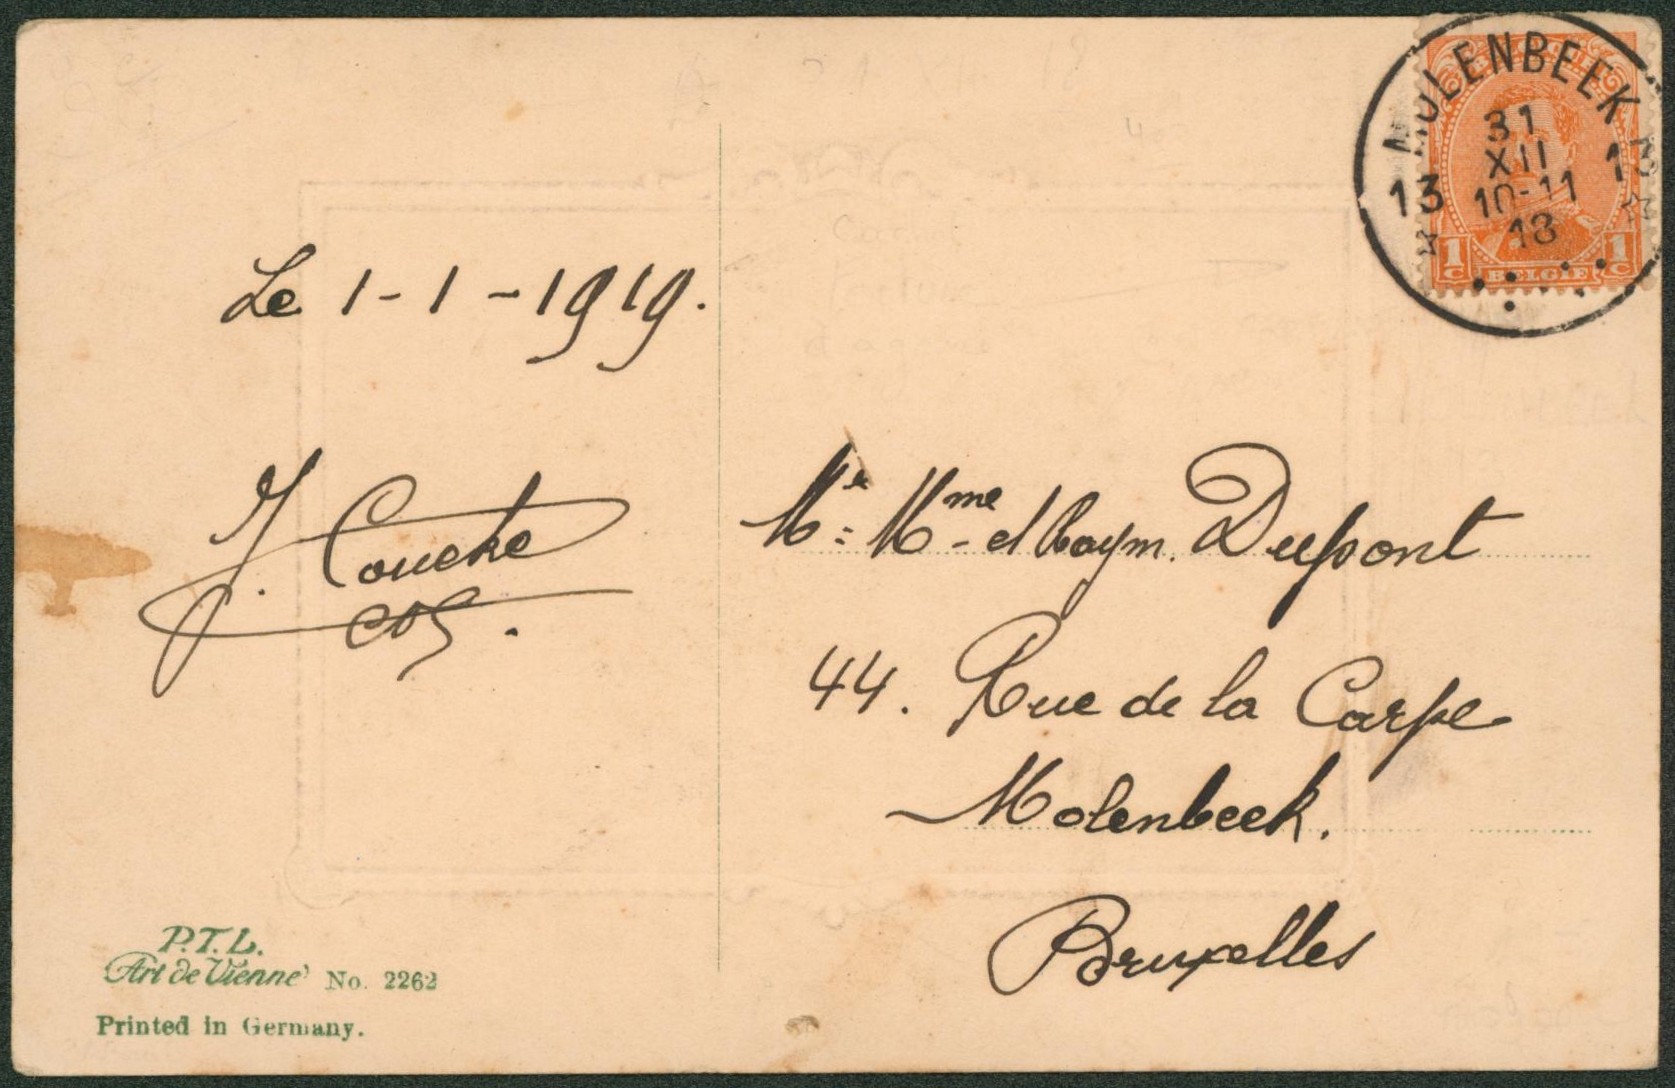 MOLENBEEK 3
31
XII
13 10-11 13
18
1c BELGIE 1c
Le 1-1-1919.
J. Couche
Mr = Mme - et Raym. Dupont
44. Rue de la Carpe
Molenbeek.
Bruxelles
P.T.L.
Art de Vienne No. 2262
Printed in Germany.